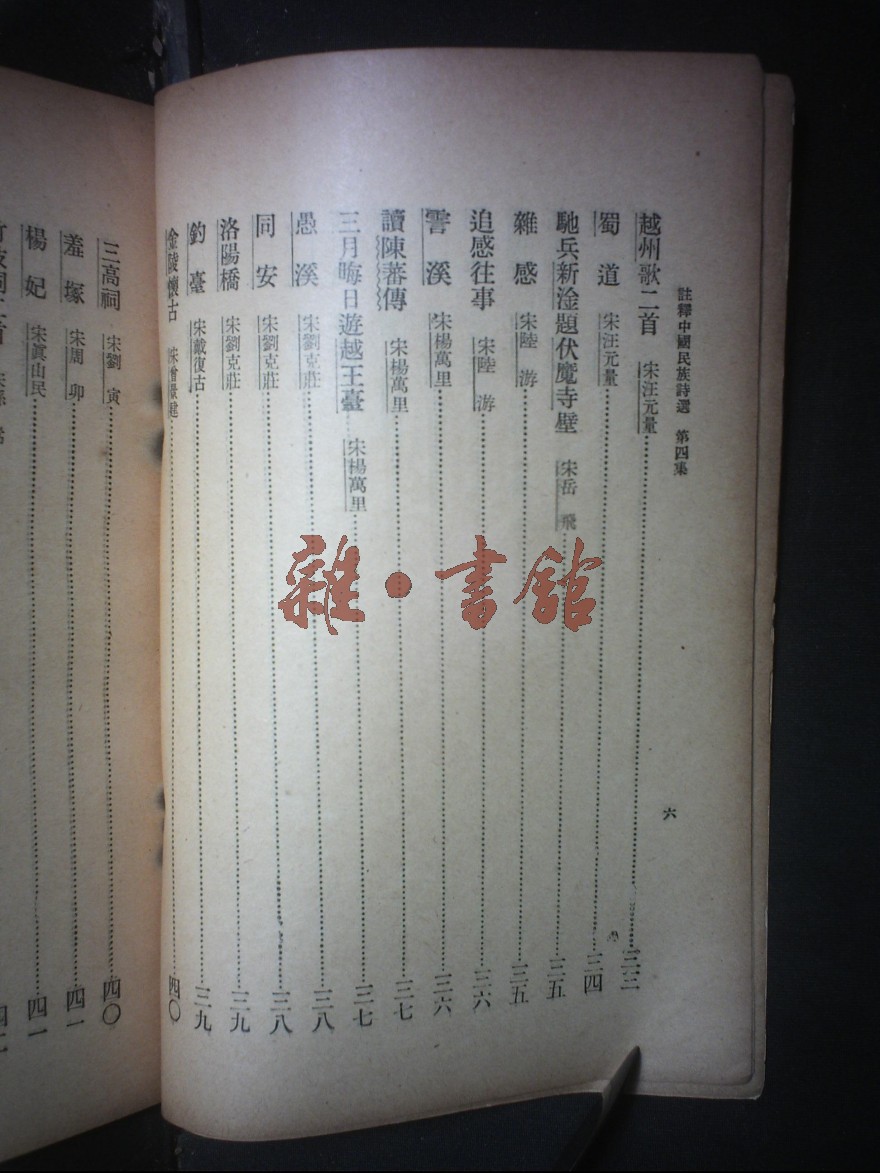 註釋中國民族詩選 第四集
六
越州歌二首 宋汪元量 三三
蜀道 宋汪元量 三四
馳兵新淦題伏魔寺壁 宋岳飛 三五
雜感 宋陸游 三五
追感往事 宋陸游 三六
霅溪 宋楊萬里 三六
讀陳蕃傳 宋楊萬里 三七
三月晦日遊越王臺 宋楊萬里 三七
愚溪 宋劉克莊 三八
同安 宋劉克莊 三八
洛陽橋 宋劉克莊 三九
釣臺 宋戴復古 三九
金陵懷古 宋曾 建 四〇
三高祠 宋劉寅 四〇
羞塚 宋周卯 四一
楊妃 宋眞山民 四一
雜·書館